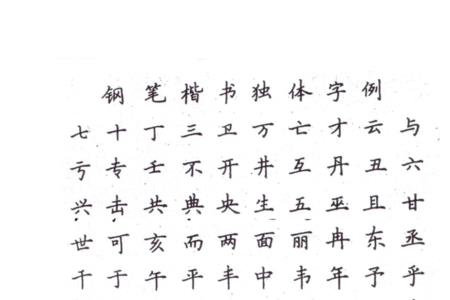 钢笔楷书独体字例
七十丁三卫万亡才云与
亏专壬不开井互丹丑六
兴击共典央生五巫且甘
世可亥而两面丽冉东丞
干于午平丰中韦年予乎